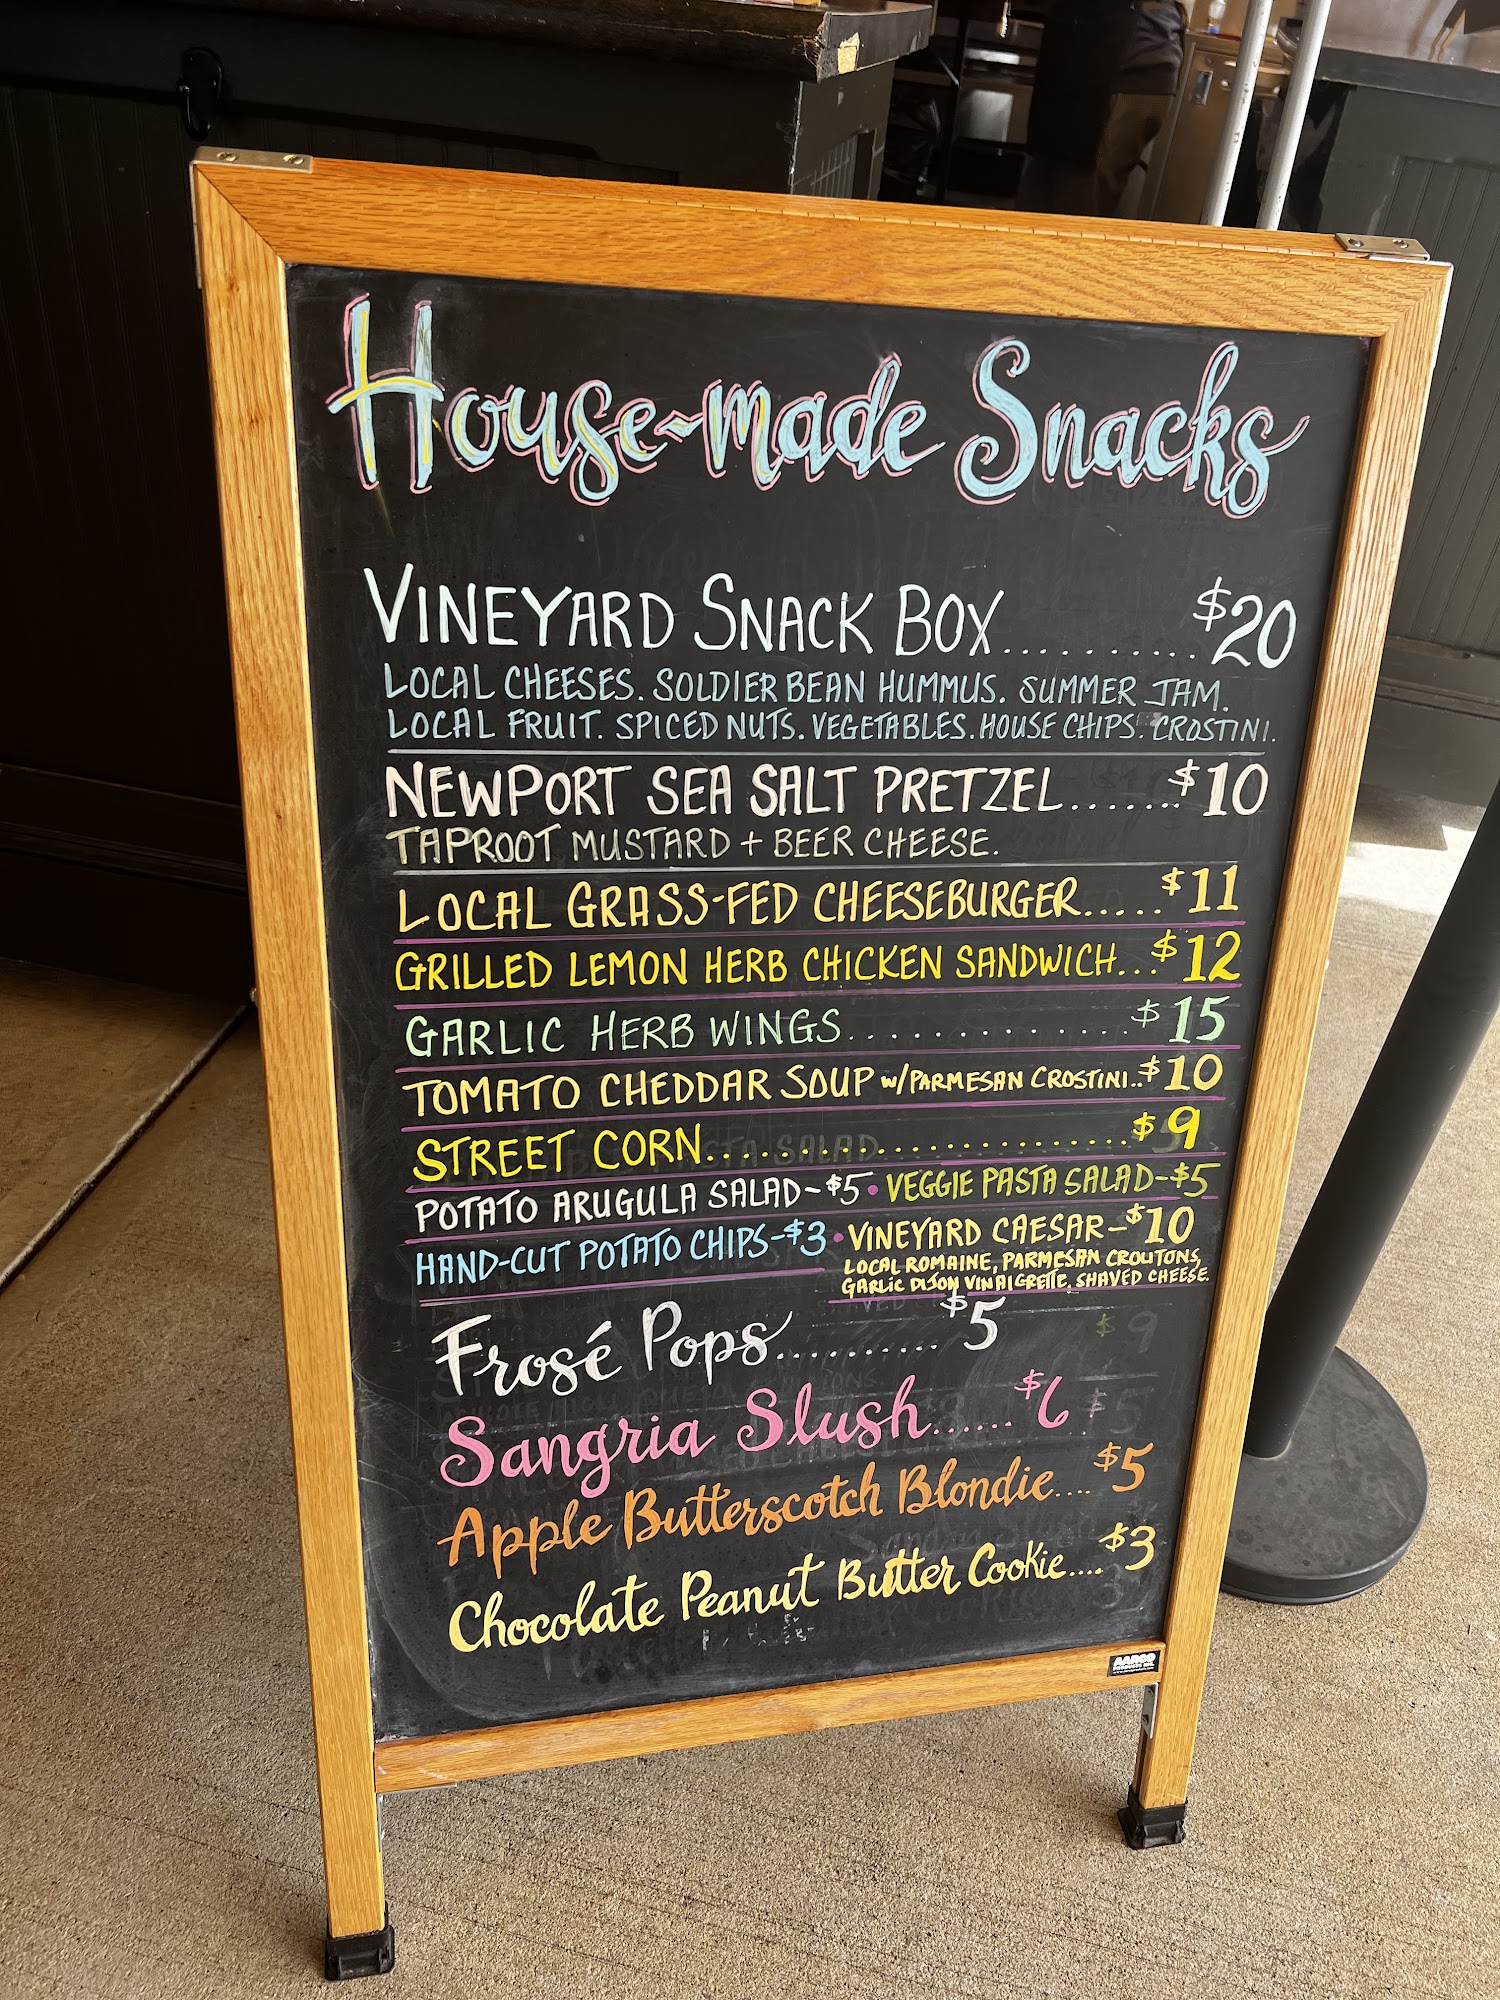 House-made Snacks
VINEYARD SNACK BOX.......... $20
LOCAL CHEESES. SOLDIER BEAN HUMMUS. SUMMER JAM.
LOCAL FRUIT. SPICED NUTS. VEGETABLES. HOUSE CHIPS. CROSTINI.
NEWPORT SEA SALT PRETZEL....... $10
TAPROOT MUSTARD + BEER CHEESE.
LOCAL GRASS-FED CHEESEBURGER..... $11
GRILLED LEMON HERB CHICKEN SANDWICH... $12
GARLIC HERB WINGS............. $15
TOMATO CHEDDAR SOUP w/PARMESAN CROSTINI.. $10
STREET CORN.................. $9
POTATO ARUGULA SALAD-$5 • VEGGIE PASTA SALAD-$5
HAND-CUT POTATO CHIPS-$3 • VINEYARD CAESAR-$10
LOCAL ROMAINE, PARMESAN CROUTONS,
GARLIC DIJON VINAIGRETTE, SHAVED CHEESE.
Frosé Pops.......... $5
Sangria Slush...... $6
Apple Butterscotch Blondie.... $5
Chocolate Peanut Butter Cookie.... $3
AARCO
PRODUCTS INC.